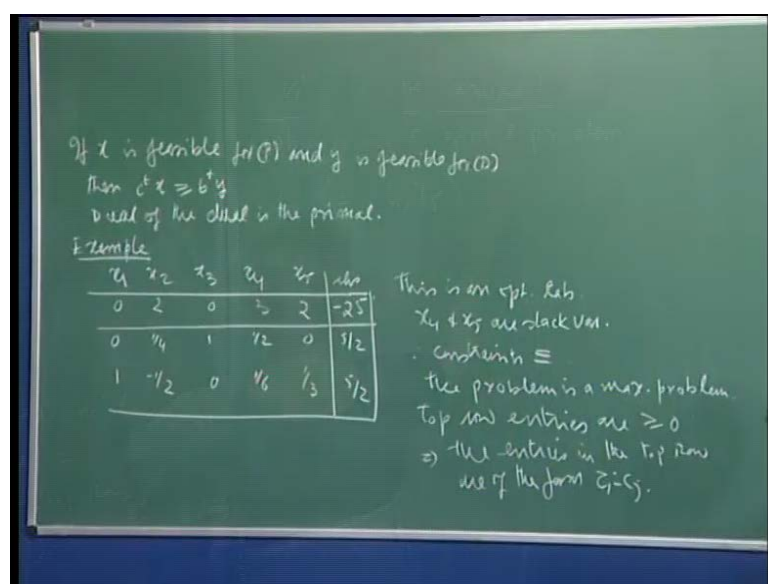 If x is feasible for (P) and y is feasible for (D)
then cᵗ x ≥ bᵗ y
Dual of the dual is the primal.
Example
x₁ x₂ x₃ x₄ x₅ rhs
0 2 0 3 2 -25
0 1/4 1 1/2 0 5/2
1 -1/2 0 1/6 1/3 5/2
This is an opt. tab.
x₄ & x₅ are slack var.
constraints ≤
the problem is a max. problem.
Top row entries are ≥ 0
⇒ the entries in the top row
are of the form zⱼ-cⱼ.